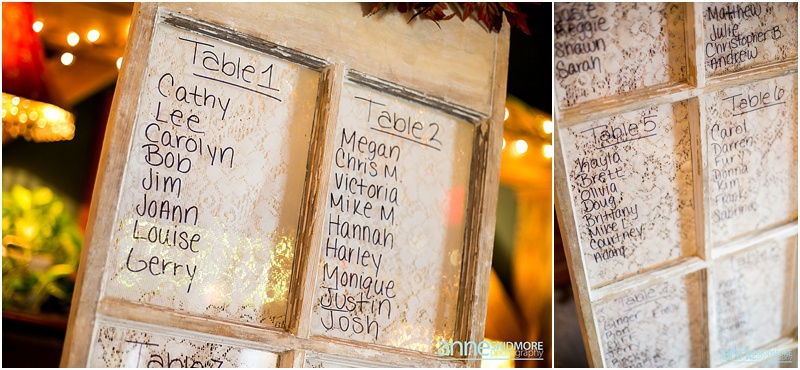 Table 1
Cathy
Lee
Carolyn
Bob
Jim
JoAnn
Louise
Gerry
Table 2
Megan
Chris M.
Victoria
Mike M
Hannah
Harley
Monique
Justin
Josh
Table 3
Reggie
Shawn
Sarah
Matthew
Julie
Christopher B.
Andrew
Table 5
Kayla
Brett
Olivia
Doug
Brittany
Mike L.
Courtney
Adam
Table 6
Carol
Darren
Donna
Kim
Frank
Sabrina
photography